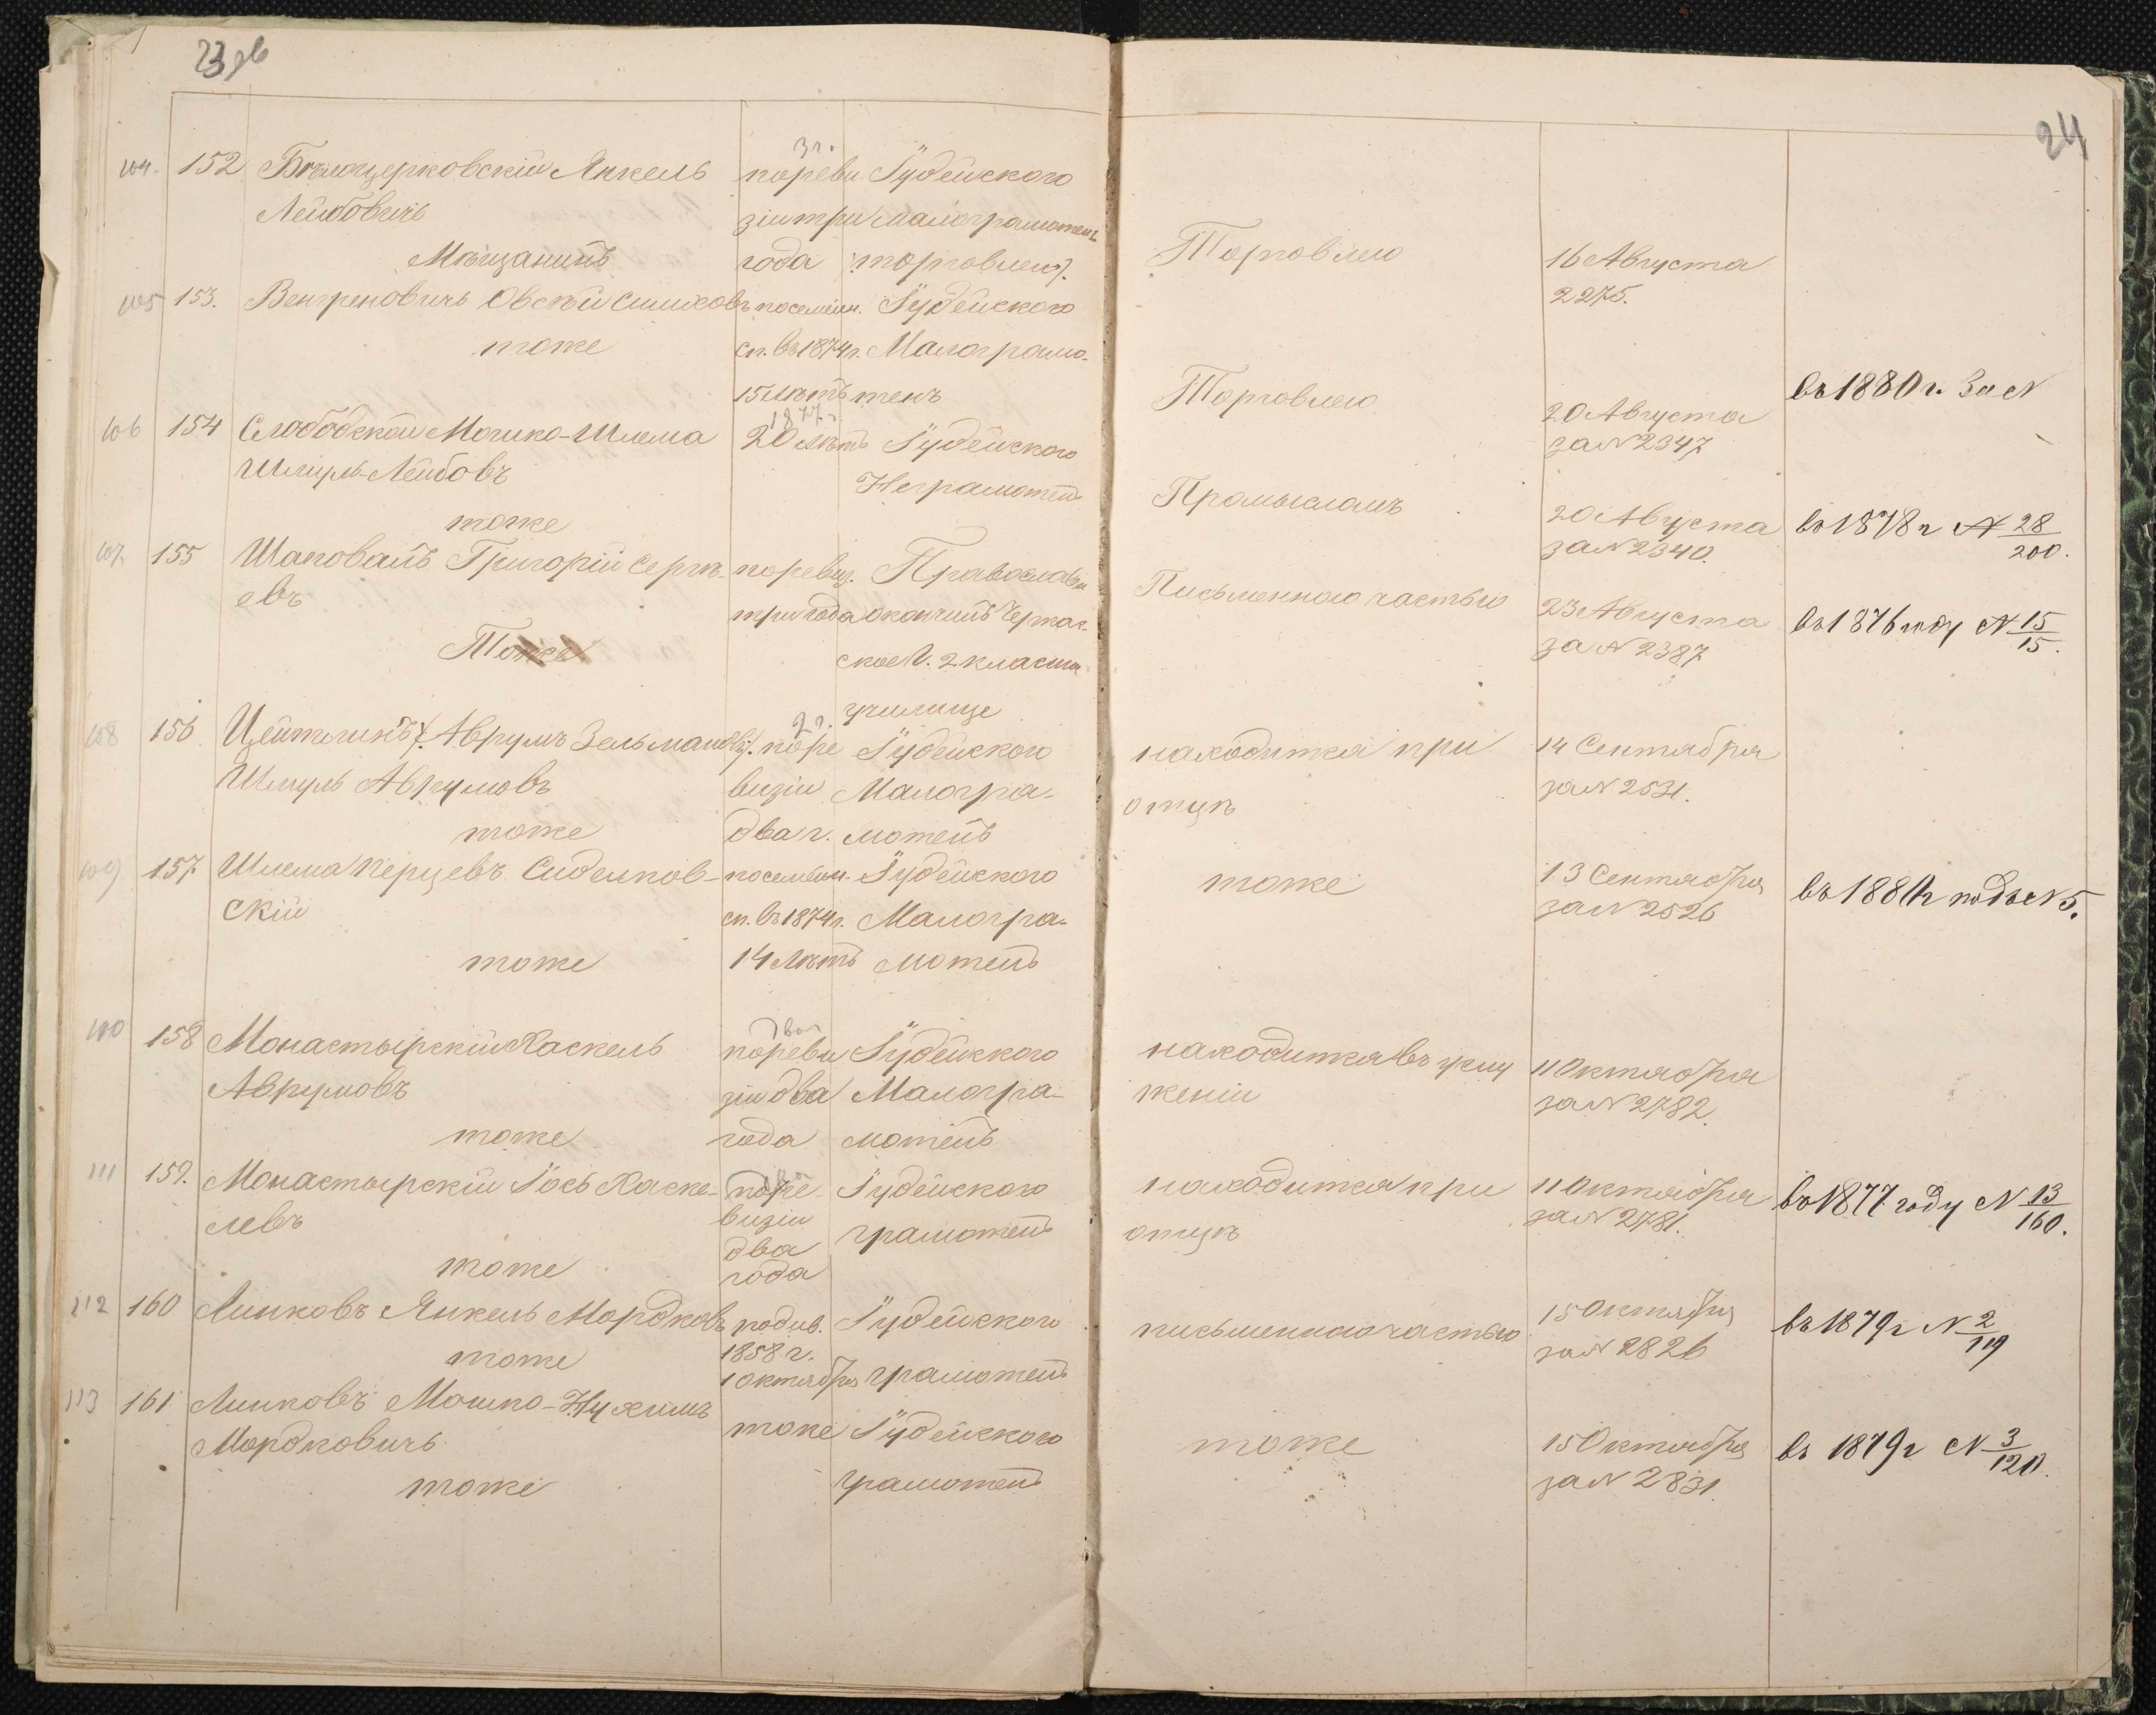 23 об
24
104. 152 Бѣлоцерковскій Янкель
Лейбовичъ
Мѣщанинъ
3 г.
по реви
зіи три
года
Іудейского
малограмотенъ
торговлею
Торговлею
16 Августа
2275.
105 153. Венгреновичъ Овсѣй
тоже
посемейн.
сп. въ 1874 г.
15 лѣтъ
Іудейского
Малограмо-
тенъ
Торговлею
20 Августа
за N 2347
въ 1880 г. За N
106 154 Слободской Мошко-Шлема
Шмуль-Лейбовъ
тоже
1877 г
20 лѣтъ
Іудейского
Неграмотенъ
Промысломъ
20 Августа
за N 2340.
въ 1878 г N 28/200.
107. 155 Шаповалъ Григорій Сергѣ-
евъ
Тоже
по ревиз.
три года
Православн
окончилъ Черкас-
ское 2 классн
училище
Письменною частью
23 Августа
за N 2387
въ 1876 году N 15/15.
108 156 Цейтлинъ (Аврумъ Зельмановъ).
Шмуль Аврумовъ
тоже
2 г.
по ре
визіи
два г.
Іудейского
Малогра-
мотенъ
находится при
отцѣ
14 Сентября
за N 2531.
109 157. Шлема Перцевъ Сиделков-
скій
тоже
посемейн.
сп. въ 1874 г.
14 лѣтъ
Іудейского
Малогра-
мотенъ
тоже
13 Сентября
за N 2526
въ 1881 г подъ N 5.
110 158 Монастырскій Хаскель
Аврумовъ
тоже
два
по реви
зіи два
года
Іудейского
Малогра-
мотенъ
находится въ услу
женіи
11 Октября
за N 2782.
111 159. Монастырскій Іось Хаске-
левъ
тоже
по ре-
визіи
два
года
Іудейского
грамотенъ
находится при
отцѣ
11 Октября
за N 2781.
въ 1877 году N 13/160.
112 160 Линковъ Янкель Мордковъ
тоже
родив.
1858 г.
1 Октября
Іудейского
грамотенъ
письменною частью
15 Октября
за N 2826
въ 1879 г N 2/119
113 161 Линковъ Мошко-Нухимъ
Мордковичъ
тоже
тоже
Іудейского
грамотенъ
тоже
15 Октября
за N 2831.
въ 1879 г N 3/120.